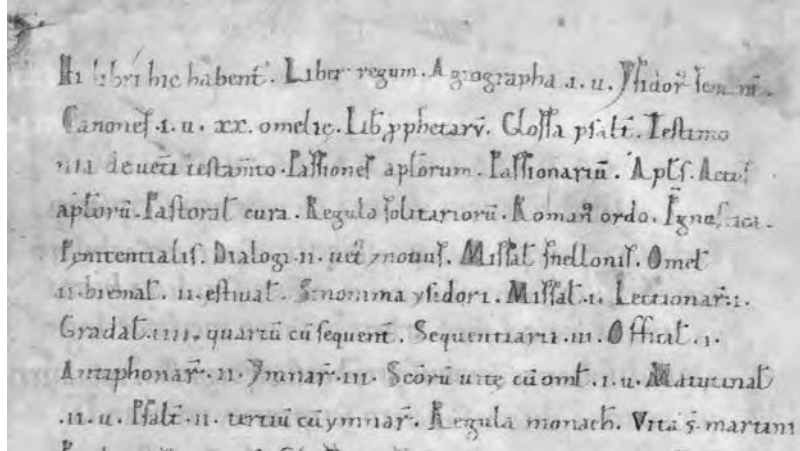 Hi libri hic habent̄. Liber regum. Agiographa .i. u. Ysidor̄
Canones .i. u. xx. omelię. Lib̄ ꝓphetarū. Glossa psalt̄. Testimo
nia de uet̄i testam̄to. Passiones apl̄orum. Passionariū. Apl̄s. Actus
apl̄orū. Pastoral̄ cura. Regula solitariorū. Romaꝰ ordo.
Penitentialis. Dialogi .ii. uet̄ ⁊ nouus. Missal̄ snellonis. Omel̄
.ii. hiemal̄. ii. estiual̄. Sinonima ysidori. Missal̄ .i. Lectionar̄ .i.
Gradal̄ .iiii. quartū cū sequent̄. Sequentiarii .iii. Offical̄ .i.
Antiphonar̄ .ii. Ymnar̄ .iii. Sc̄orū uitę cū oml̄ .i. u. Matutinal̄
.ii. u. Psalt̄ .ii. tertiū cū ymnar̄. Regula monach̄. Vita s̄. martini